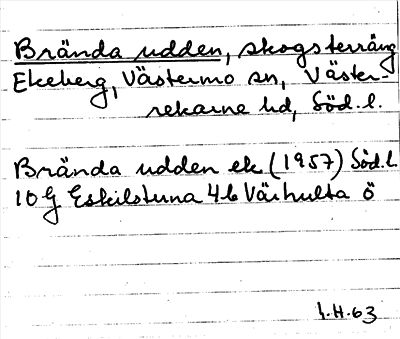 Brända udden, skogsterräng
Ekeberg, Västermo sn, Väster-
rekarne hd, Söd. l.
Brända udden ek (1957) Söd. l.
10 G Eskilstuna 4 b Väihulta ö
I.H.63